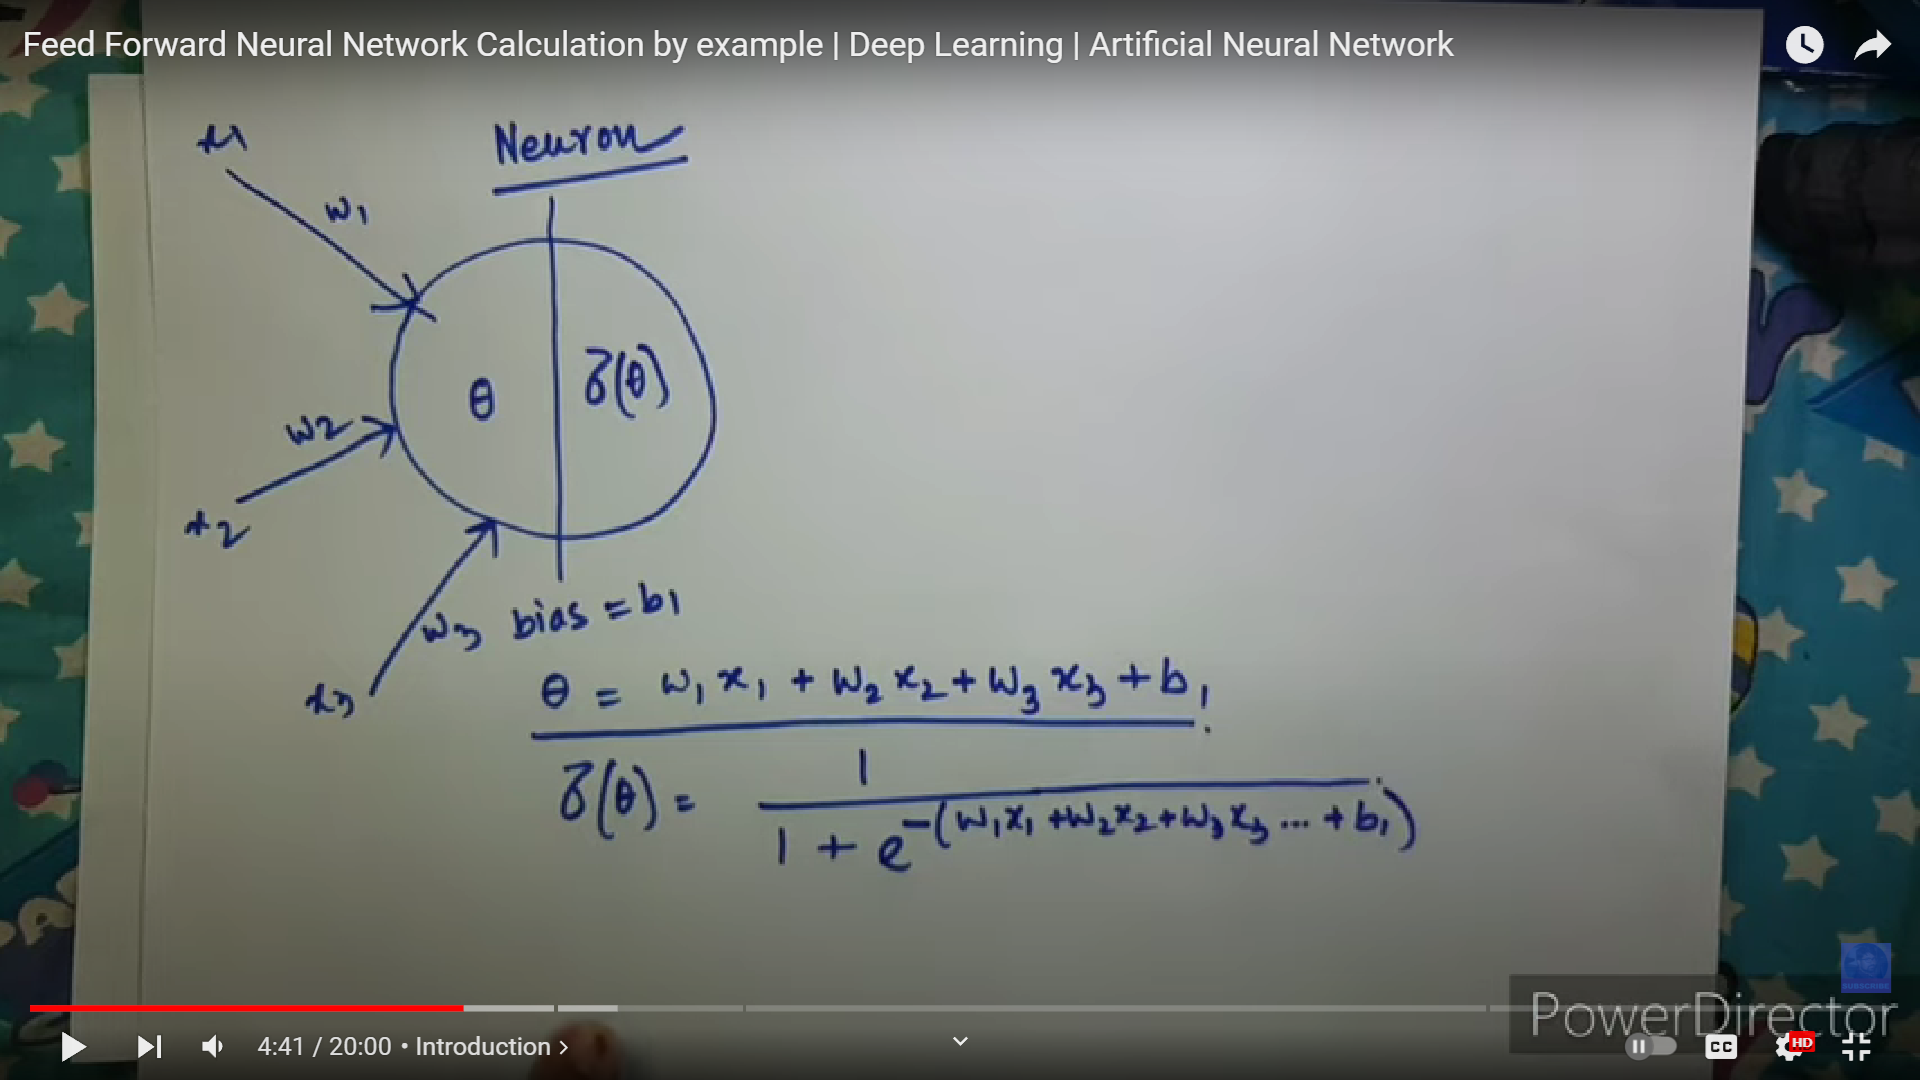 Feed Forward Neural Network Calculation by example | Deep Learning | Artificial Neural Network
x1
Neuron
w1
θ
σ(θ)
w2
x2
w3 bias = b1
x3
θ = w₁x₁ + w₂x₂ + w₃x₃ + b₁
σ(θ) = 1
1 + e^-(w₁x₁ + w₂x₂ + w₃x₃ ... + b₁)
SUBSCRIBE
PowerDirector
4:41 / 20:00 • Introduction >
CC
HD